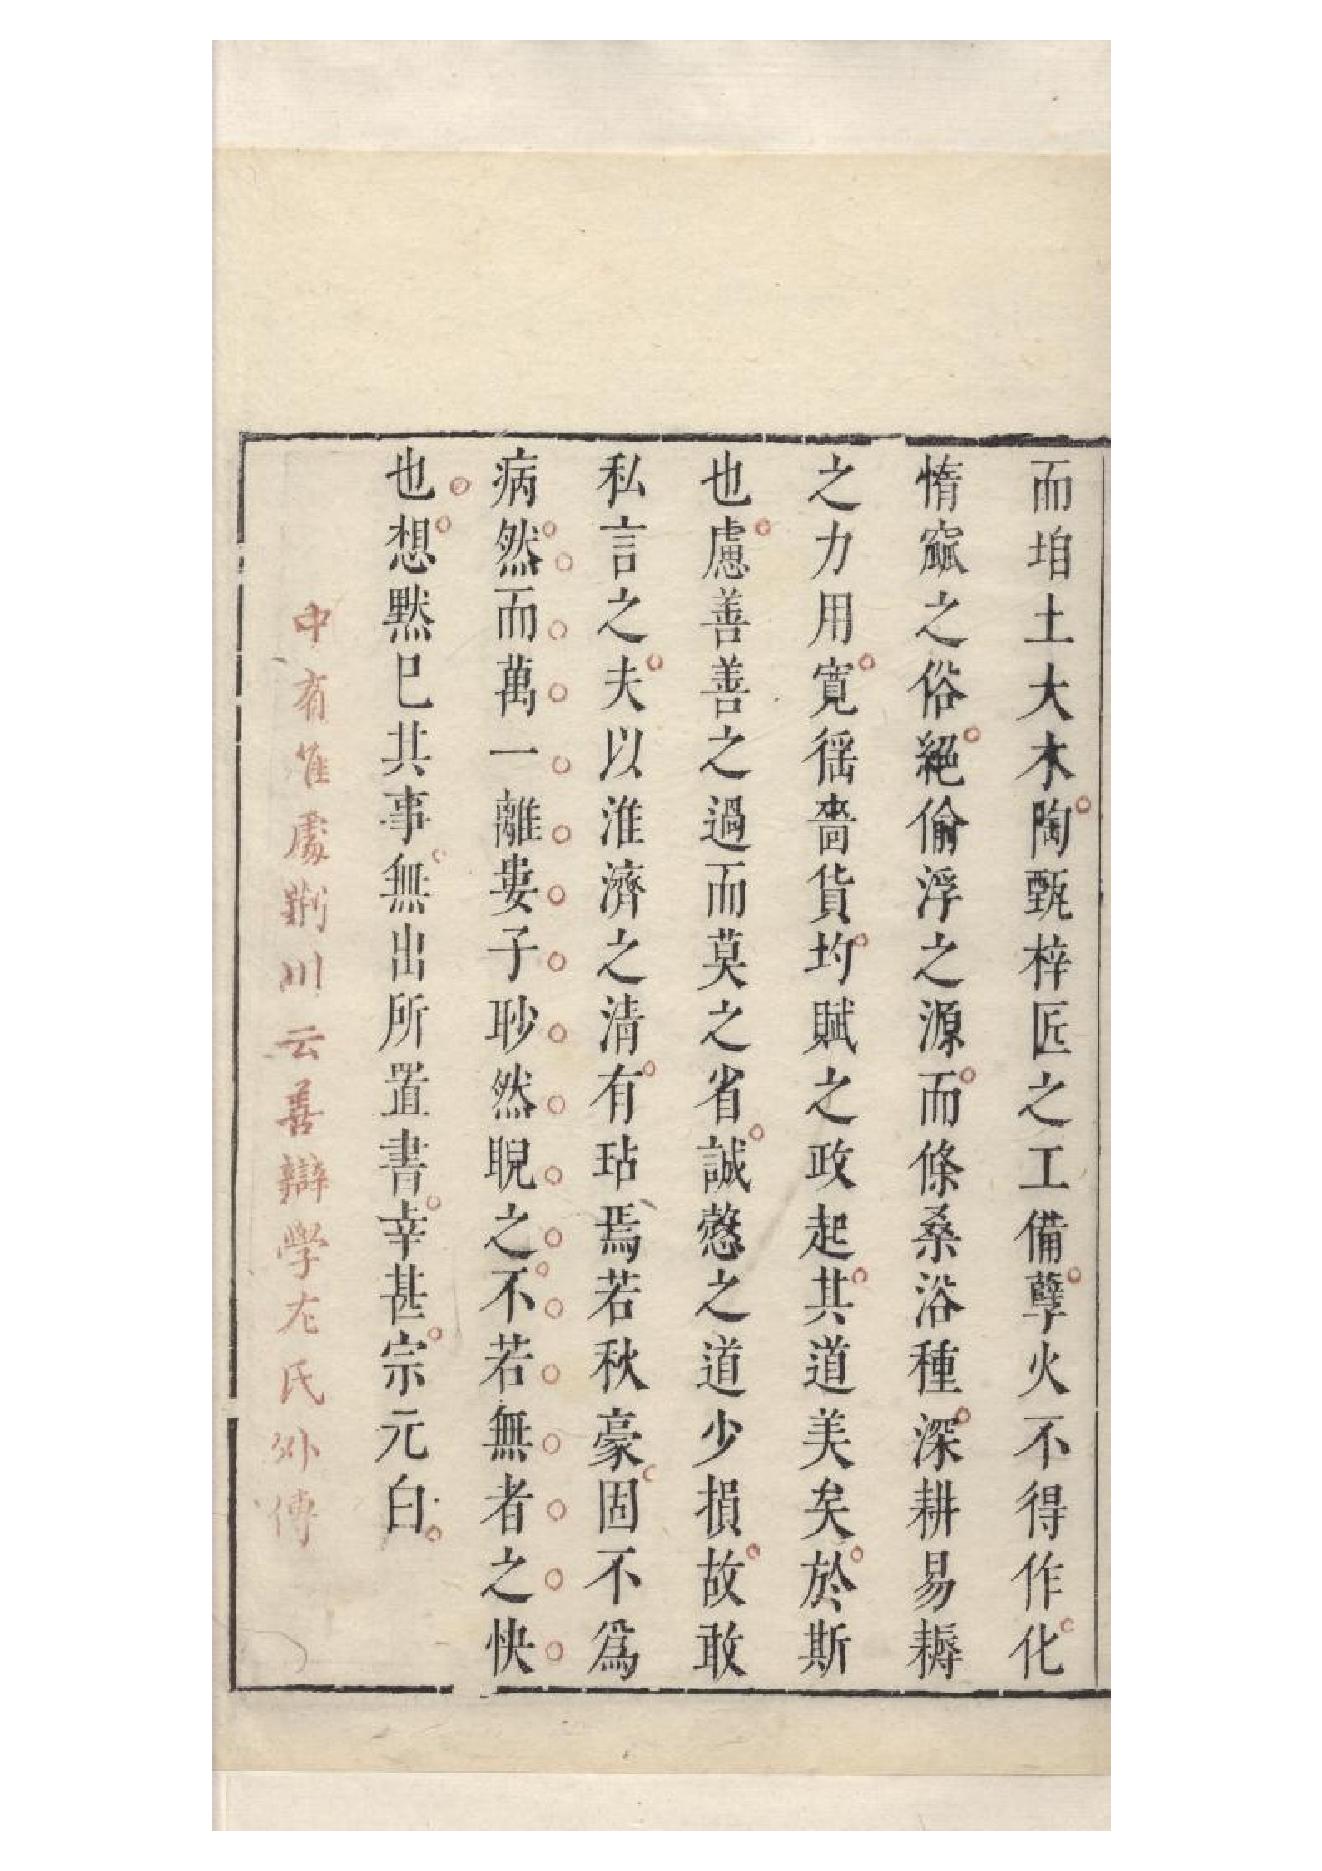 而垍土大木陶甄梓匠之工備孽火不得作化
惰窳之俗絕偷浮之源而條桑浴種深耕易耨
之力用寛徭嗇貨均賦之政起其道美矣於斯
也慮善善之過而莫之省誠慤之道少損故敢
私言之夫以淮濟之清有玷焉若秋豪固不爲
病然而萬一離婁子眇然睨之不若無者之快
也想默已其事無出所置書幸甚宗元白
中有難處荆川云善辯學左氏外傳